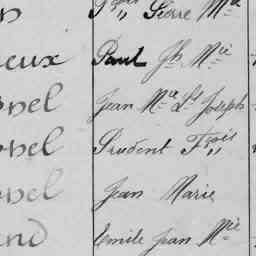 Pierre Me
eux Paul Jh Mie
nel Jean Me Ls Joseph
nel Prudent Fçois
nel Jean Marie
and Emile Jean Mie